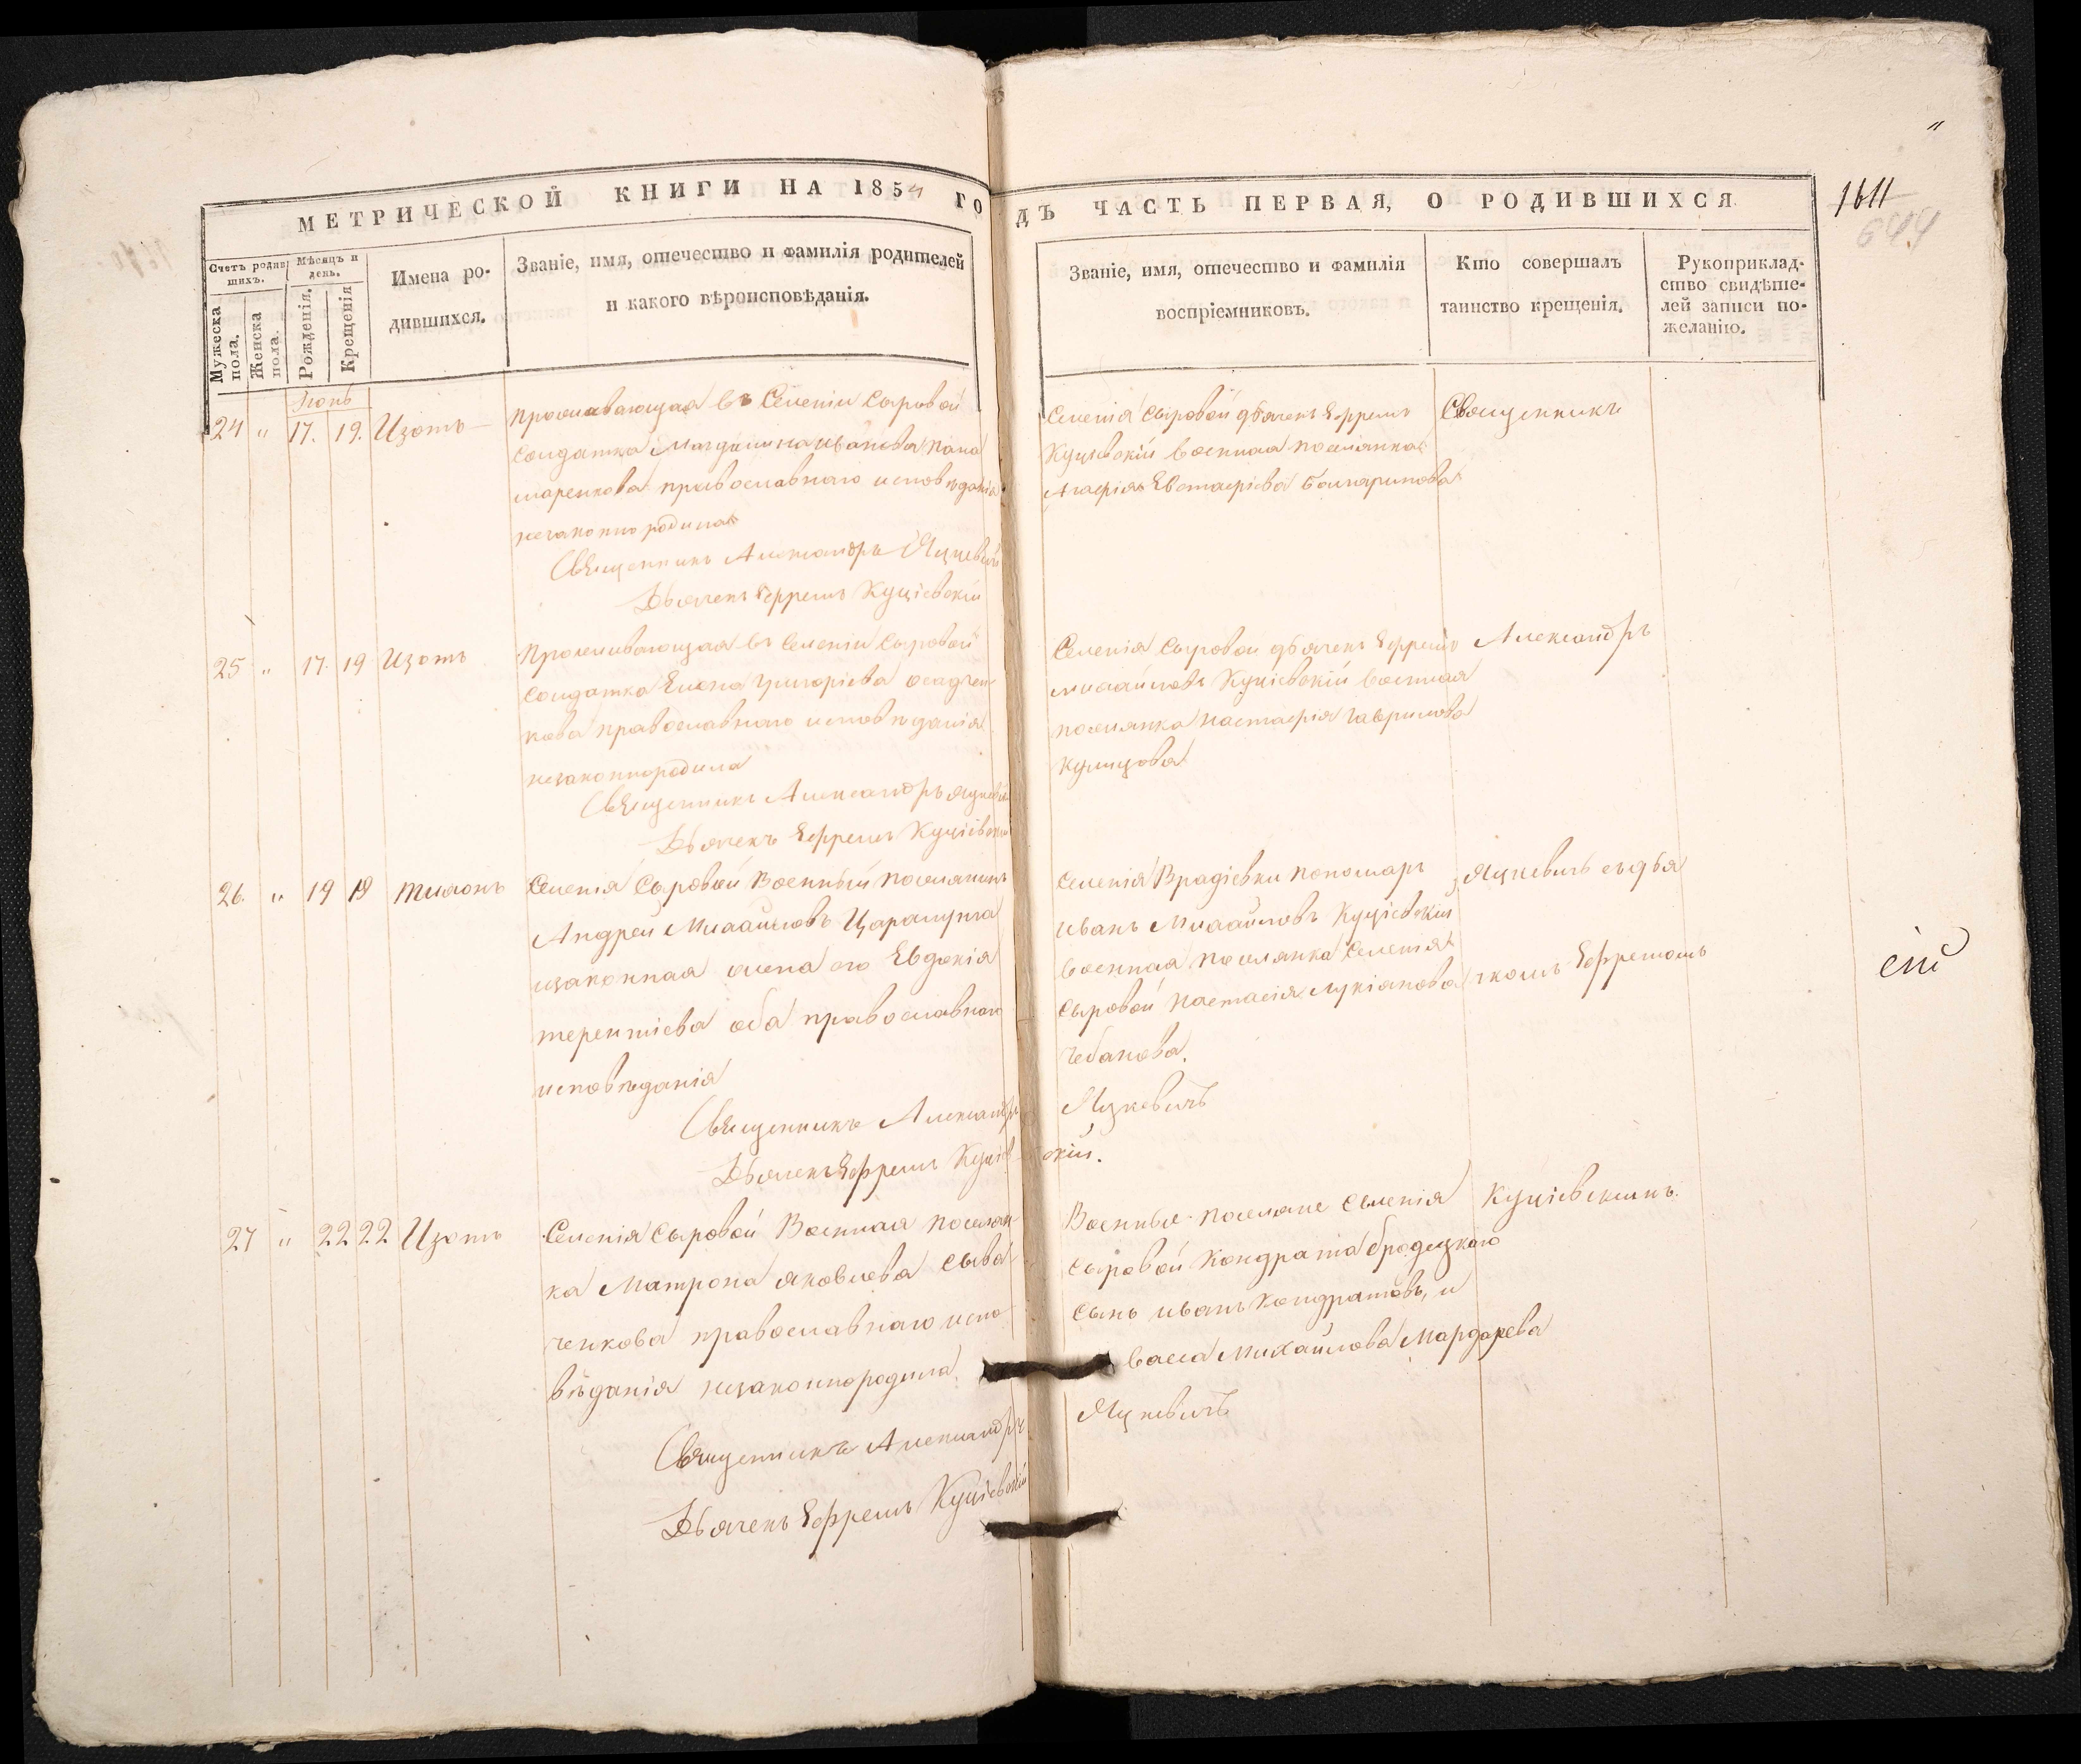 МЕТРИЧЕСКОЙ КНИГИ НА 1854 ГОДЪ ЧАСТЬ ПЕРВАЯ, О РОДИВШИХСЯ
1611
644
Счетъ родив-
шихъ.
Мужеска пола.
Женска пола.
Мѣсяцъ и день.
Рожденія.
Крещенія
Имена ро-
дившихся.
Званіе, имя, отечество и фамилія родителей
и какого вѣроисповѣданія.
Званіе, имя, отечество и фамилія
воспріемниковъ.
Кто совершалъ
таинство крещенія.
Рукоприклад-
ство свидѣте-
лей записи по-
желанію.
24 " 17. 19. Изотъ
проживающая въ Селеніи Сыровой
солдатка Магдалина Иванова Пона
маренкова православнаго исповѣданія
незаконно родила
Священникъ Александръ Яцкевичъ
Дьячекъ Ефремъ Куціевскій
Селенія Сыровой дьячекъ Ефремъ
Куціевскій военная поселянка
Агафія Евстафіева Болгаринова
Священникъ
25 " 17. 19 Изотъ
Проживающая въ Селеніи Сыровой
солдатка Елена Григоріева Осадчен
кова православнаго исповѣданія
незаконнородила
Священникъ Александръ Яцкевичъ
Дьячекъ Ефремъ Куціевскій
Селенія Сыровой дьячекъ Ефремъ
Михайловъ Куціевскій военная
поселянка Настасія Гаврилова
Александръ
26. " 19 19 Тихонъ
Селенія Сыровой Военный поселянинъ
Андрей Михайловъ Царалунга
и законная жена его Евдокія
терентіева оба православнаго
исповѣданія
Священникъ Александръ Яцкевичъ
Дьячекъ Ефремъ Куціевскій.
Селенія Врадіевки пономарь
Иванъ Михайловъ Куціевскій
военная поселянка Селенія
Сыровой Настасія Лукіянова
Чебанова.
Яцкевичъ съ дья
чкомъ Ефремомъ
27 " 22 22 Изотъ
Селенія Сыровой Военная поселян
ка Матрона Яковлева Сыва
ченкова православнаго испо
вѣданія незаконнородила.
Священникъ Александръ Яцкевичъ
Дьячекъ Ефремъ Куціевскій
Военные поселяне Селенія
Сыровой Кондрата Бродецкаго
сынъ Иванъ Кондратовъ, и
Васса Михайлова Мардарева
Куціевскимъ.